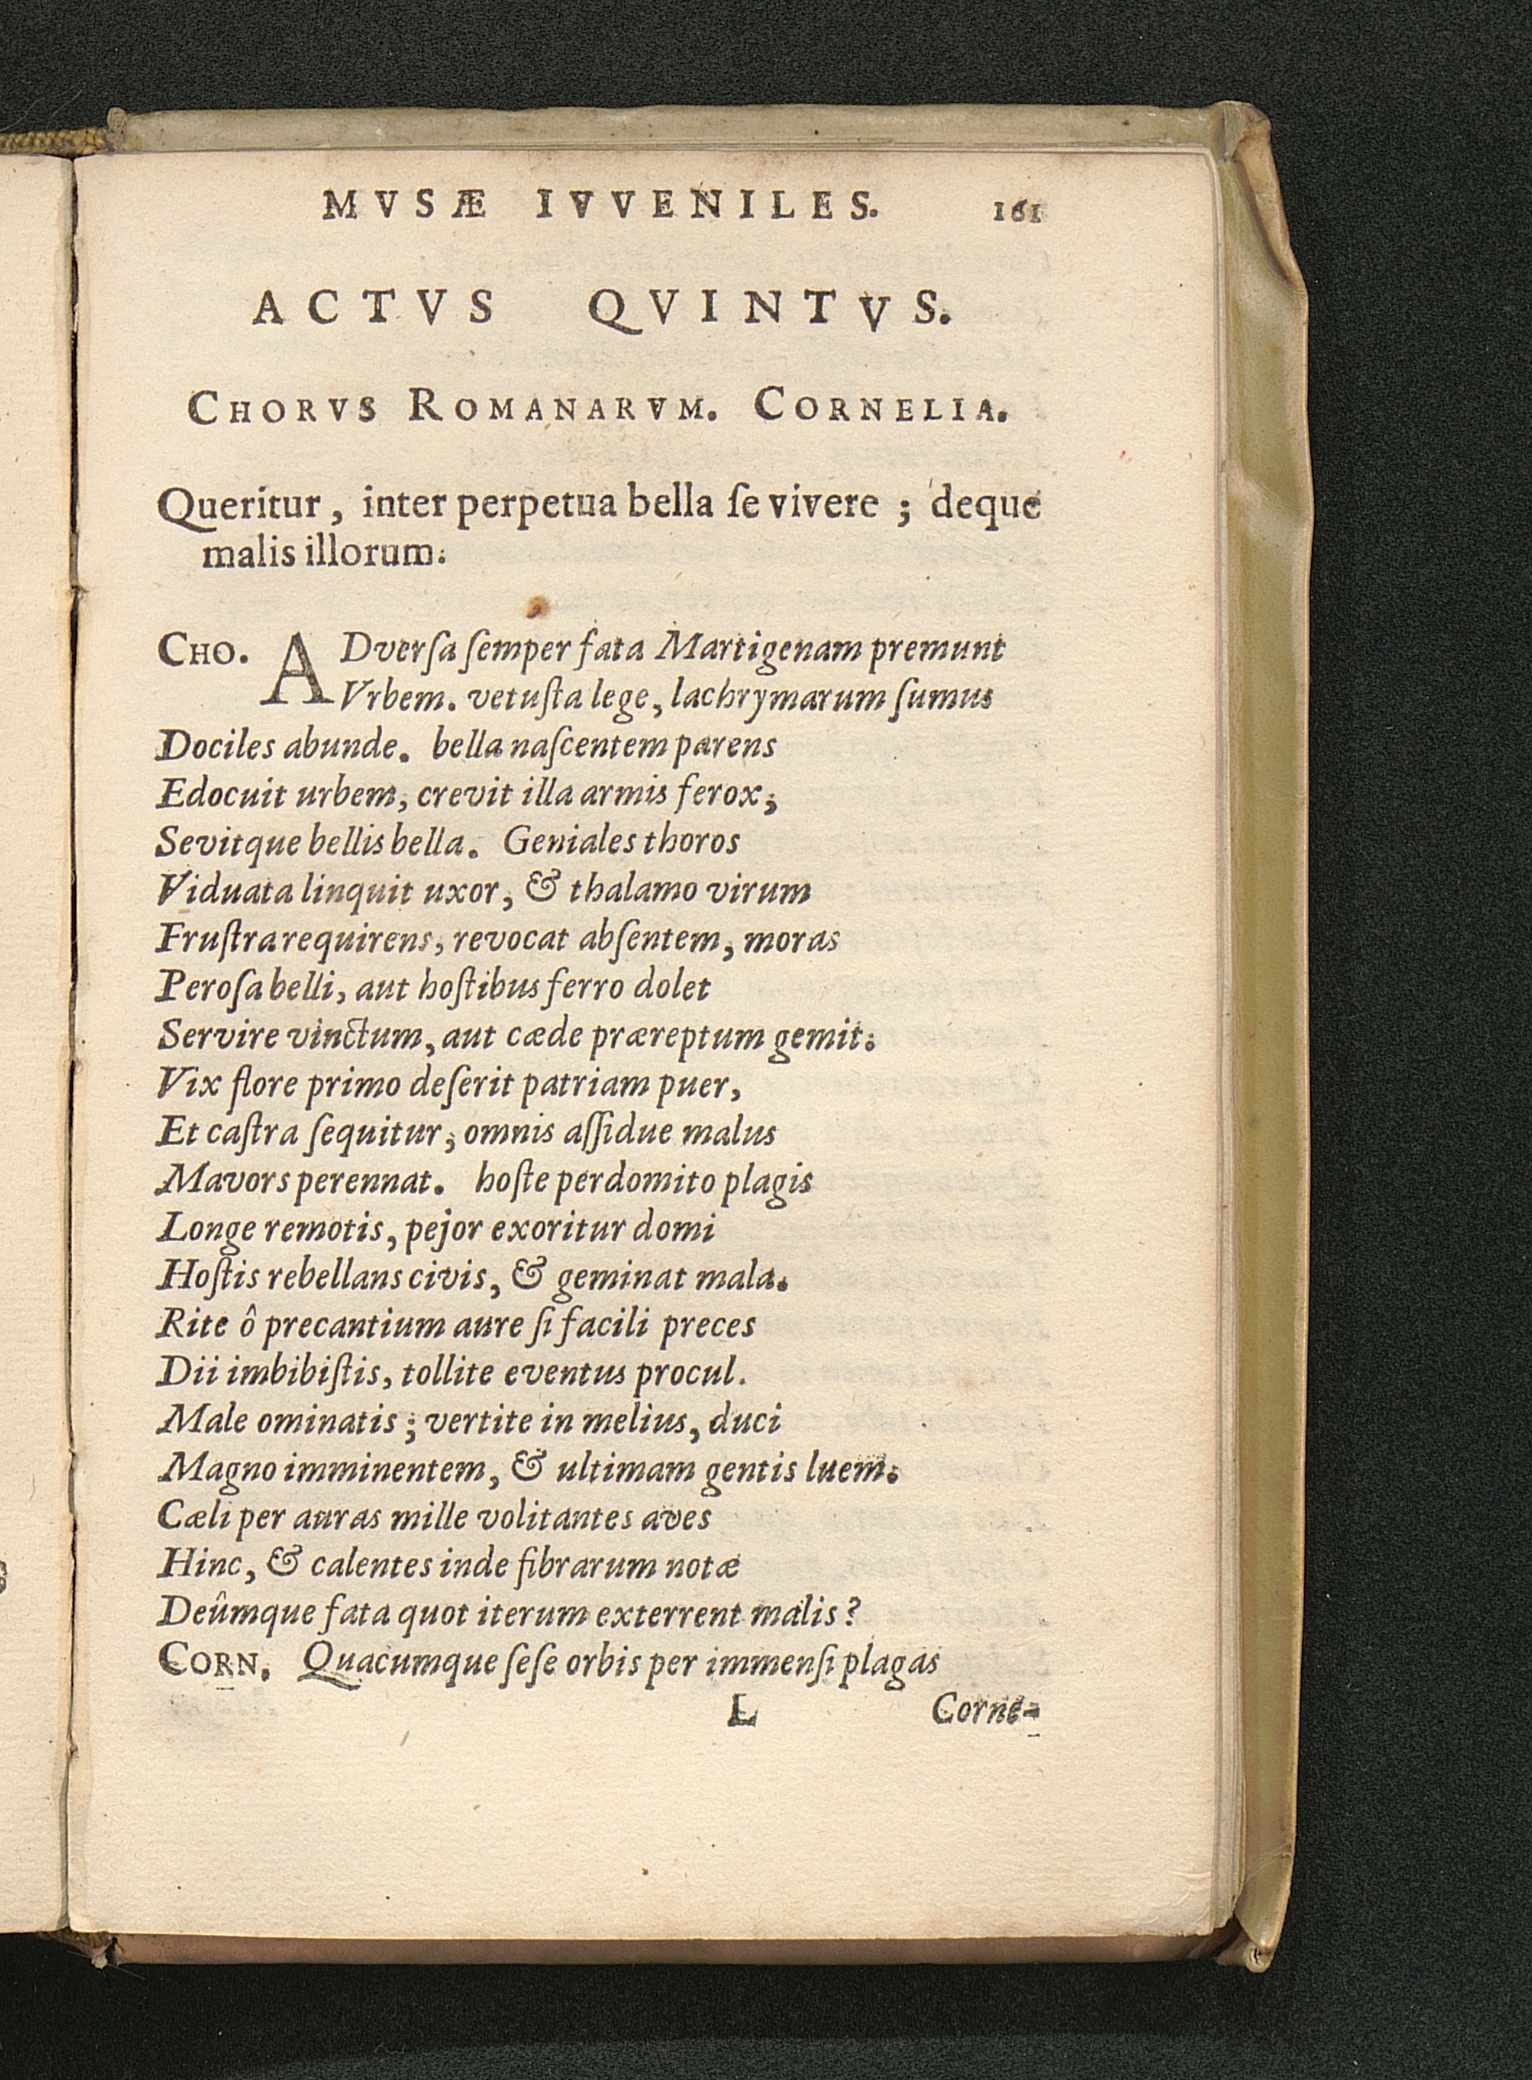 MVSÆ IVVENILES. 161
ACTVS QVINTVS.
CHORVS ROMANARVM. CORNELIA.
Queritur, inter perpetua bella ſe vivere; deque
malis illorum.
CHO. ADverſa ſemper fata Martigenam premunt
Vrbem. vetuſta lege, lachrymarum ſumus
Dociles abunde. bella naſcentem parens
Edocuit urbem, crevit illa armis ferox;
Sevitque bellis bella. Geniales thoros
Viduata linquit uxor, & thalamo virum
Fruſtra requirens, revocat abſentem, moras
Peroſa belli, aut hoſtibus ferro dolet
Servire vinctum, aut cæde præreptum gemit.
Vix flore primo deſerit patriam puer,
Et caſtra ſequitur; omnis aſſidue malus
Mavors perennat. hoſte perdomito plagis
Longe remotis, pejor exoritur domi
Hoſtis rebellans civis, & geminat mala.
Rite ô precantium aure ſi facili preces
Dii imbibiſtis, tollite eventus procul.
Male ominatis; vertite in melius, duci
Magno imminentem, & ultimam gentis luem.
Cæli per auras mille volitantes aves
Hinc, & calentes inde fibrarum notæ
Deûmque fata quot iterum exterrent malis?
CORN. Quacumque ſeſe orbis per immenſi plagas
L Corne-